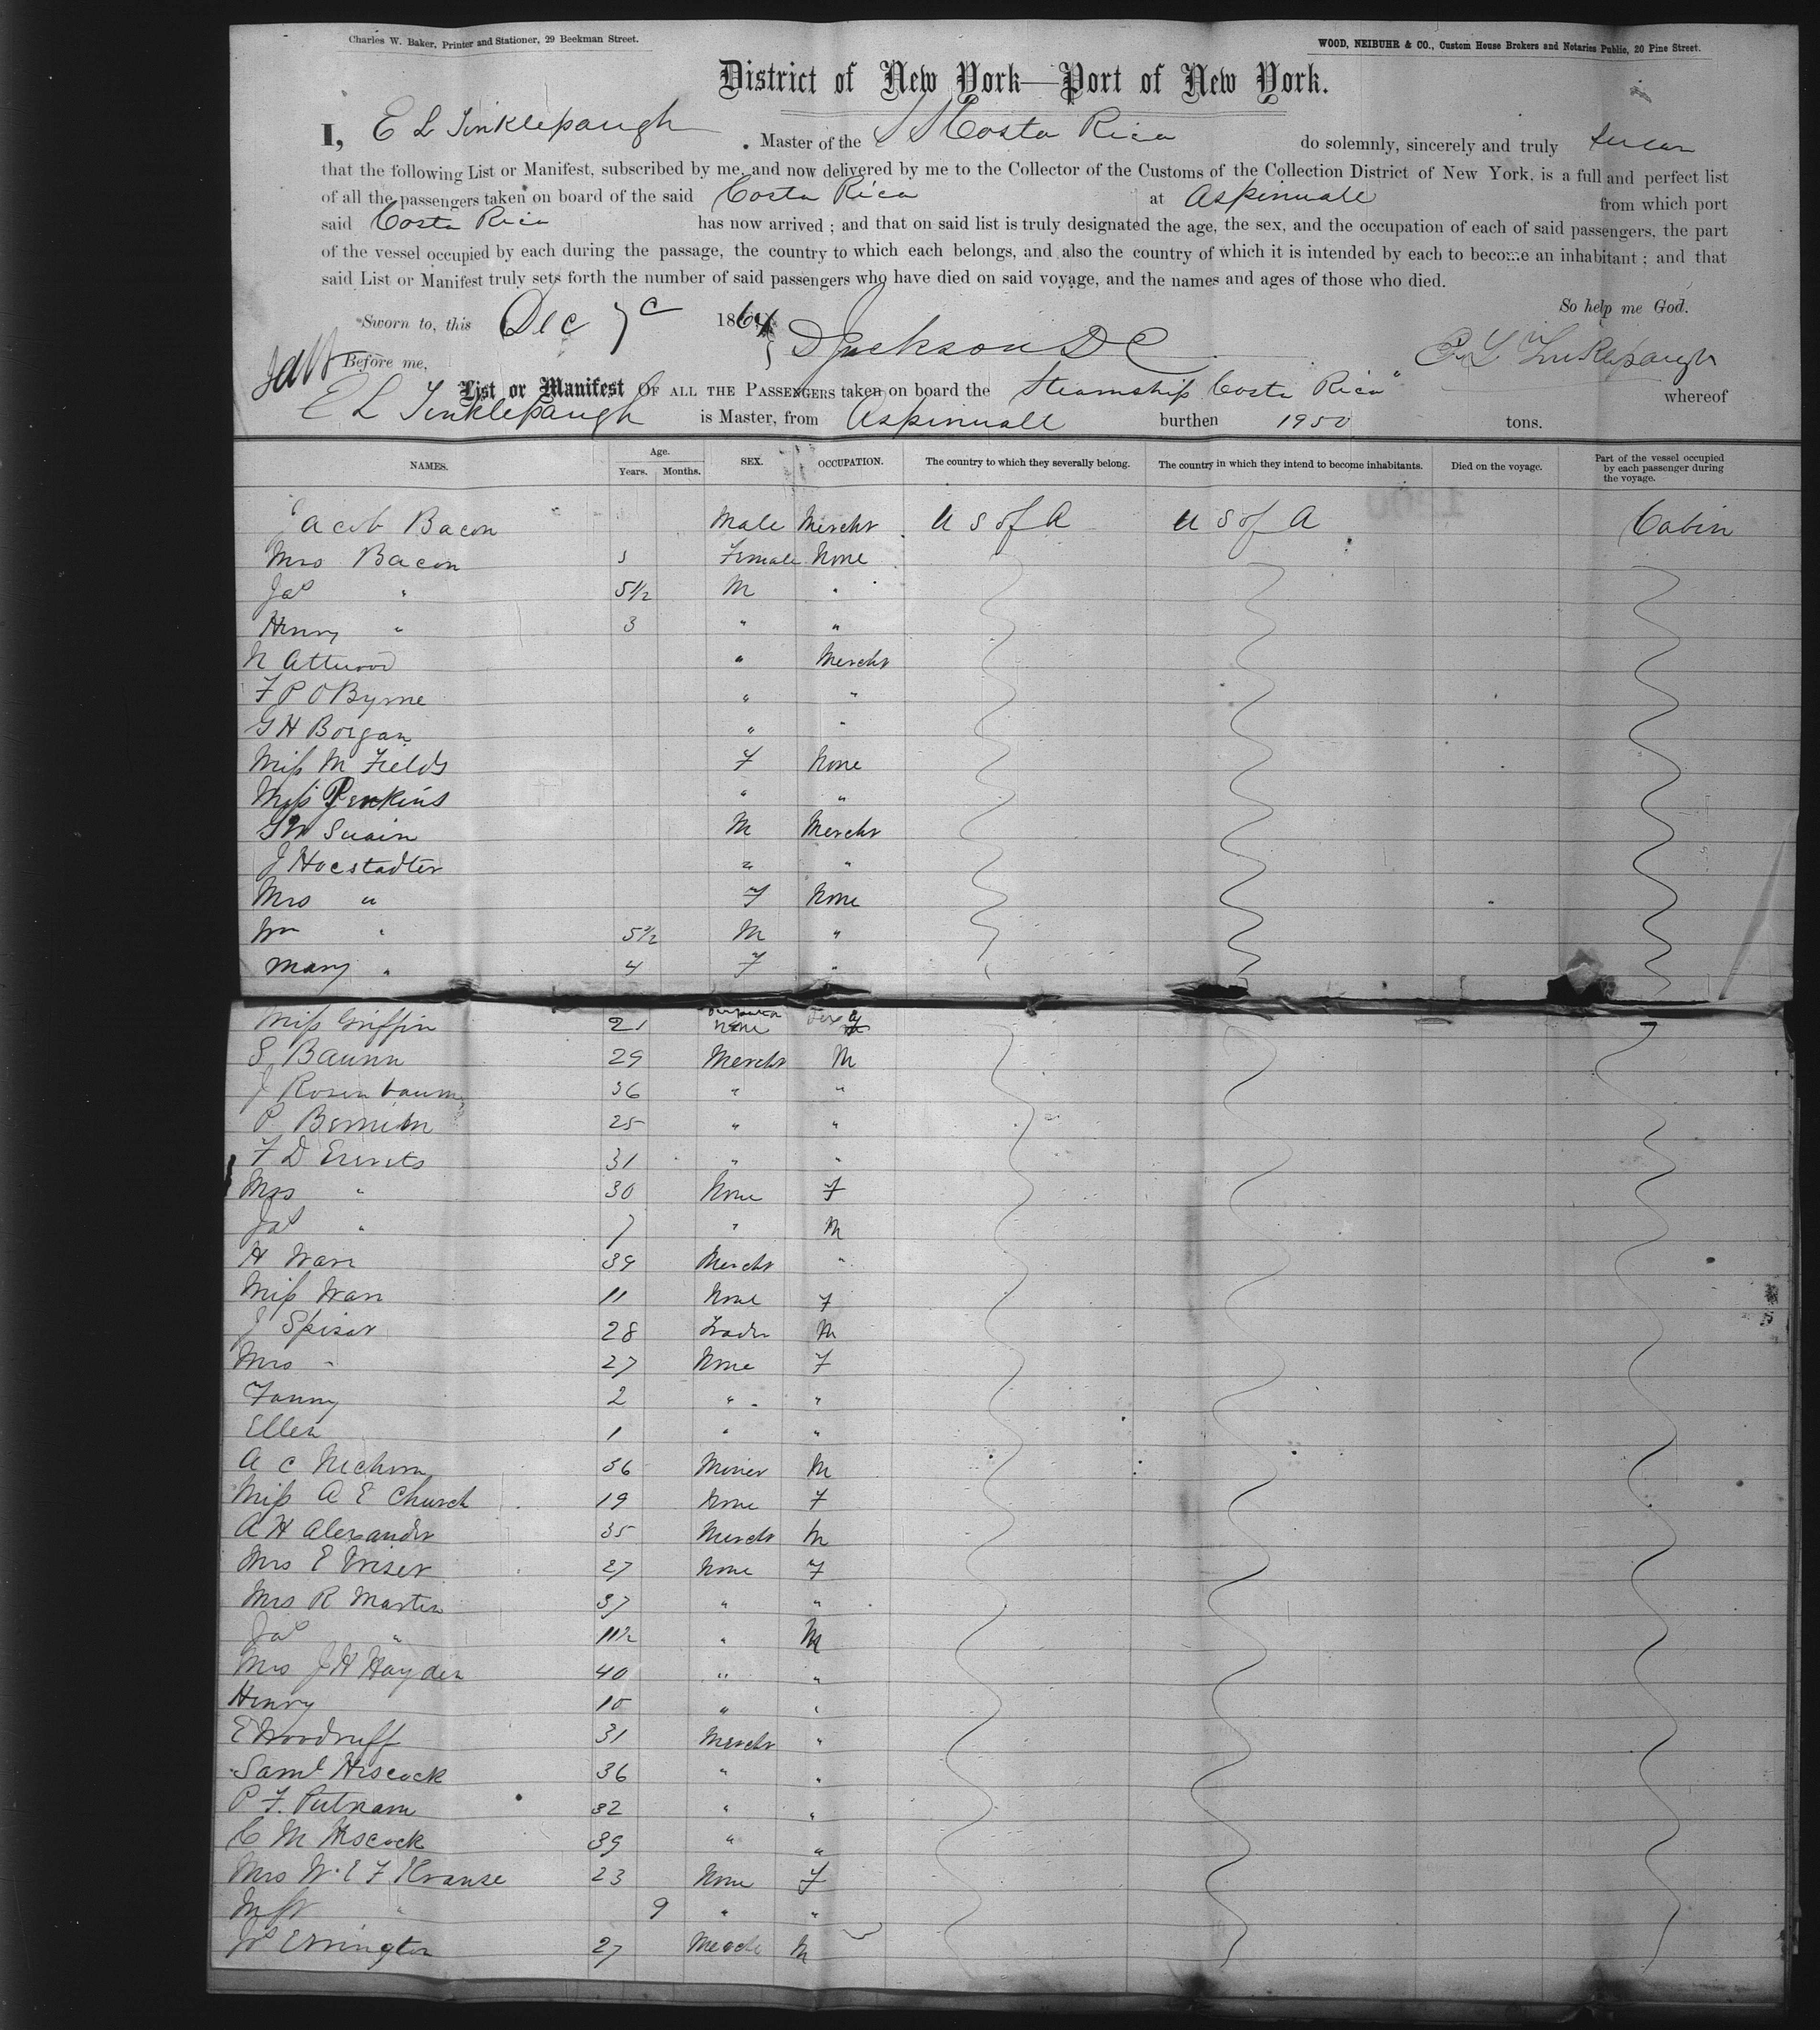 Charles W. Baker, Printer and Stationer, 29 Beekman Street.
WOOD, NEIBUHR & CO., Custom House Brokers and Notaries Public, 20 Pine Street.
District of New York—Port of New York.
I, E L Tinklepaugh , Master of the SS Costa Rica do solemnly, sincerely and truly swear
that the following List or Manifest, subscribed by me, and now delivered by me to the Collector of the Customs of the Collection District of New York, is a full and perfect list
of all the passengers taken on board of the said Costa Rica at Aspinwall from which port
said Costa Rica has now arrived ; and that on said list is truly designated the age, the sex, and the occupation of each of said passengers, the part
of the vessel occupied by each during the passage, the country to which each belongs, and also the country of which it is intended by each to become an inhabitant ; and that
said List or Manifest truly sets forth the number of said passengers who have died on said voyage, and the names and ages of those who died.
So help me God.
Sworn to, this Dec 7 1864
Before me, D Jackson D C E L Tinklepaugh
List or Manifest OF ALL THE PASSENGERS taken on board the Steamship Costa Rica" whereof
E L Tinklepaugh is Master, from Aspinwall burthen 1950 tons.
NAMES. Age. Years. Months. SEX. OCCUPATION. The country to which they severally belong. The country in which they intend to become inhabitants. Died on the voyage. Part of the vessel occupied by each passenger during the voyage.
Jacob Bacon Male Mercht U S of A U S of A Cabin
Mrs Bacon Female None
Jas " 5 1/2 M "
Henry " 3 " "
N Attwood " Mercht
F P O Byrne " "
G H Borgan " "
Miss M Fields F None
Miss Perkins " "
Swain M Mercht
J Hocstadter " "
Mrs " F None
Wm " 5 1/2 M "
Mary " 4 F "
Miss Griffin 21 None
S Baunn 29 Mercht M
J Rosenbaum 36 " "
P 25 " "
F D 31 " "
Mrs " 30 None F
Jas " 7 " M
H Warr 39 Mercht "
Miss Warr 11 None F
J Spisar 28 Trader M
Mrs " 27 None F
Fanny 2 " "
Ellen 1 " "
A C 36 Miner M
Miss A E Church 19 None F
A H Alexander 35 Mercht M
Mrs E 27 None F
Mrs R Martin 37 " "
Jas " 11 1/2 " M
Mrs J H Hayden 40 " "
Henry 10 " "
E Woodruff 31 Mercht "
Saml Hiscock 36 " "
P F. Putnam 32 " "
C M Hiscock 39 " "
Mrs W. E F Krause 23 None F
Inft " 9 " "
Errington 27 Mercht M